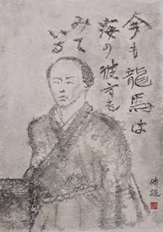 今も龍馬は
海の彼方を
みて
いる